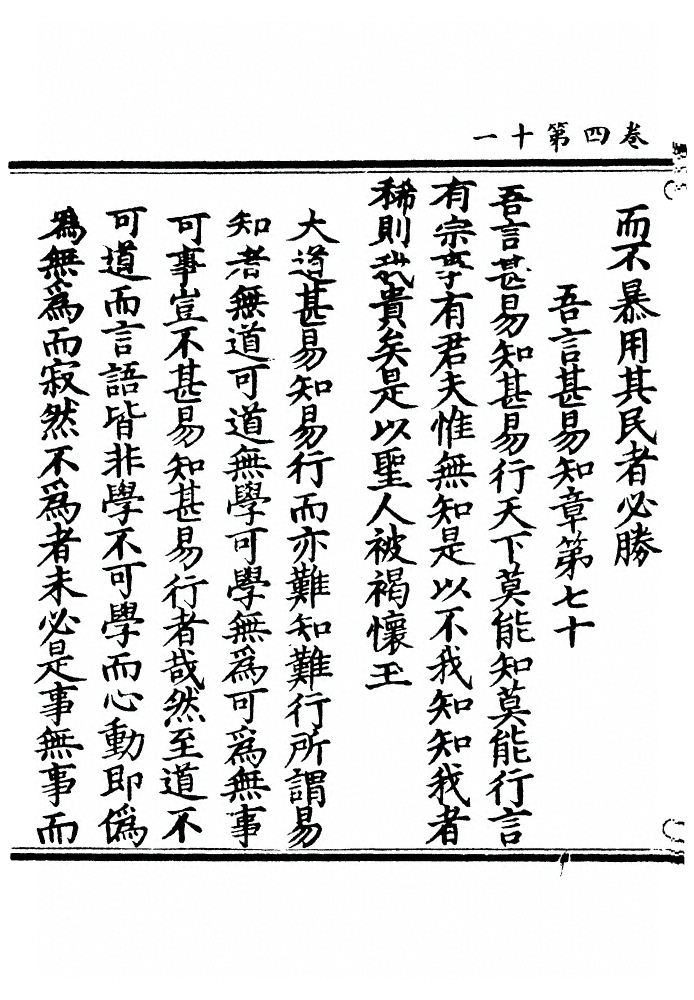 卷四第十一
而不暴用其民者必勝
吾言甚易知章第七十
吾言甚易知甚易行天下莫能知莫能行言
有宗事有君夫惟無知是以不我知知我者
稀則我貴矣是以聖人被褐懷玉
大道甚易知易行而亦難知難行所謂易
知者無道可道無學可學無爲可爲無事
可事豈不甚易知甚易行者哉然至道不
可道而言語皆非學不可學而心動即僞
爲無爲而寂然不爲者未必是事無事而